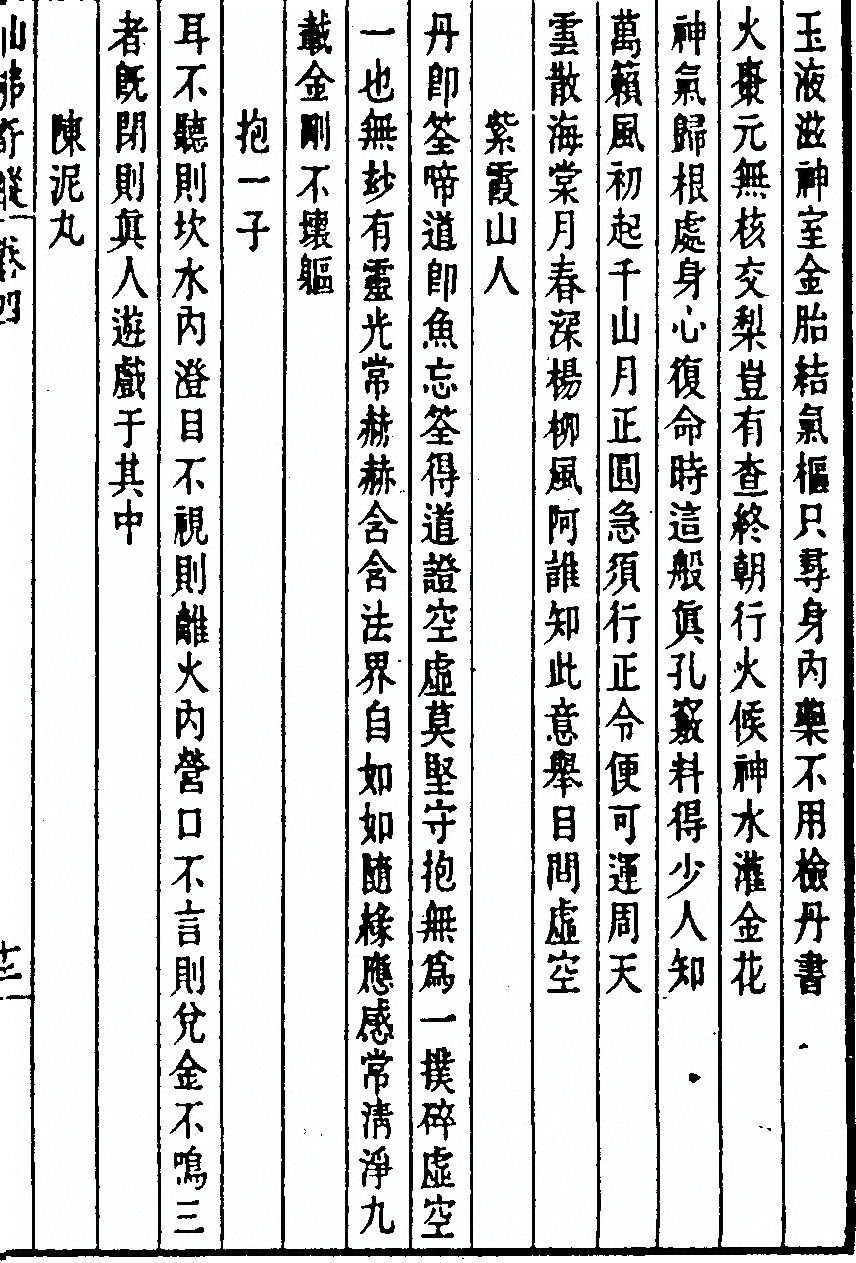 玉液滋神室金胎結氣樞只尋身内藥不用檢丹書
火棗元無核交梨豈有查終朝行火候神水灌金花
神氣歸根處身心復命時這般眞孔竅料得少人知
萬籟風初起千山月正圓急須行正令便可運周天
雲散海棠月春深楊柳風阿誰知此意舉目問虛空
紫霞山人
丹卽筌啼道卽魚忘筌得道證空虛莫堅守抱無爲一撲碎虛空
一也無玅有靈光常赫赫含含法界自如如隨緣應感常清淨九
載金剛不壞軀
抱一子
耳不聽則坎水内澄目不視則離火内營口不言則兌金不鳴三
者旣閉則眞人遊戲于其中
陳泥丸
仙佛奇蹤 卷四 十二